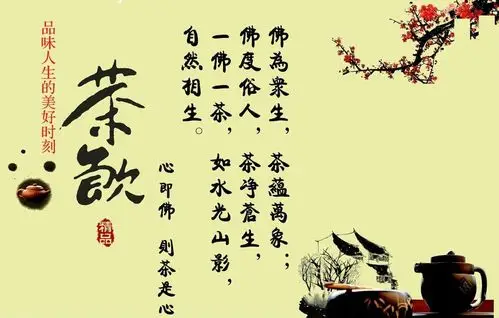 佛為衆生，茶蘊萬象；
佛度俗人，茶净蒼生，
一佛一茶，如水光山影，
自然相生。
心即佛 則茶是心
茶飲
精品
品味人生的美好时刻